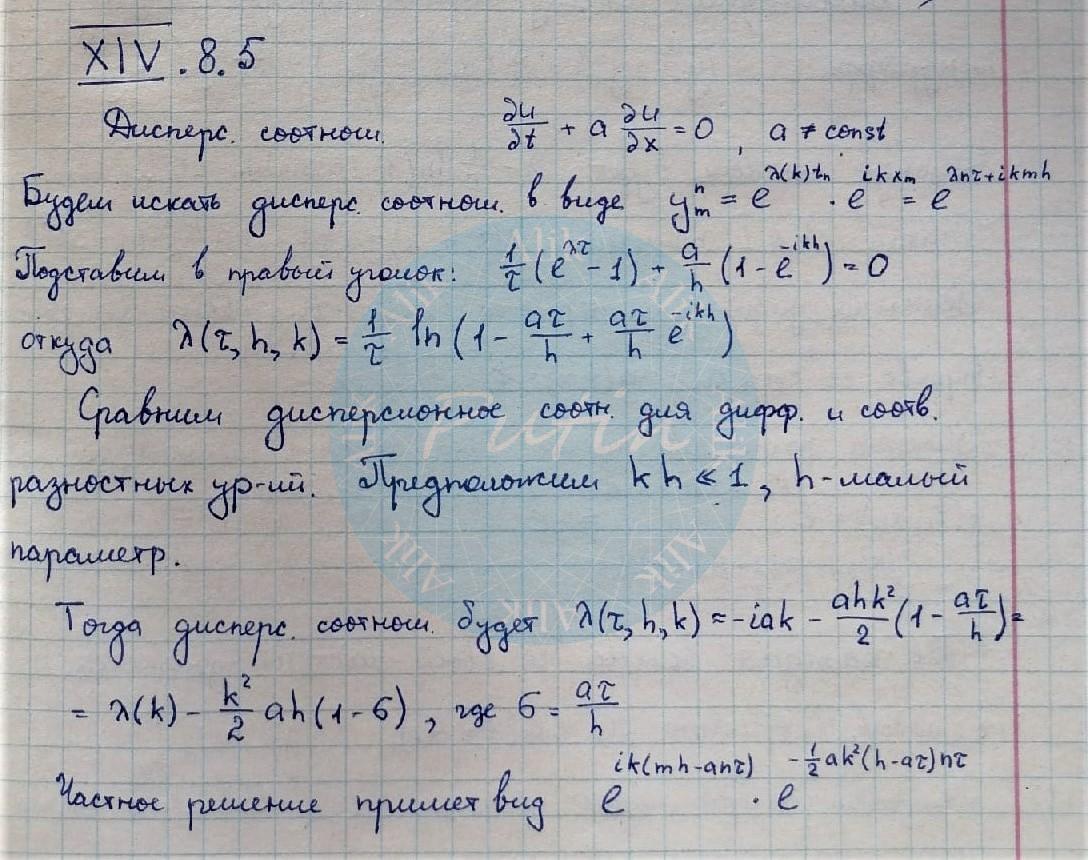 XIV.8.5
Дисперс. соотнош. ∂u/∂t + a ∂u/∂x = 0, a ≠ const
Будем искать дисперс. соотнош. в виде y_m^n = e^{λ(k)t_n} · e^{ikx_m} = e^{λnτ+ikmh}
Подставим в правый уголок: 1/τ (e^{λτ} - 1) + a/h (1 - e^{-ikh}) = 0
откуда λ(τ, h, k) = 1/τ ln (1 - aτ/h + aτ/h e^{-ikh})
Сравним дисперсионное соотн. для дифф. и соотв.
разностных ур-ий. Предположим kh ≪ 1, h-малый
параметр.
Тогда дисперс. соотнош. будет λ(τ, h, k) ≈ -iak - ahk²/2 (1 - aτ/h) =
= λ(k) - k²/2 ah(1-б), где б = aτ/h
Частное решение примет вид e^{ik(mh-anτ)} · e^{-1/2 ak²(h-aτ)nτ}
Alik
Alik
Alik
Alik
Alik